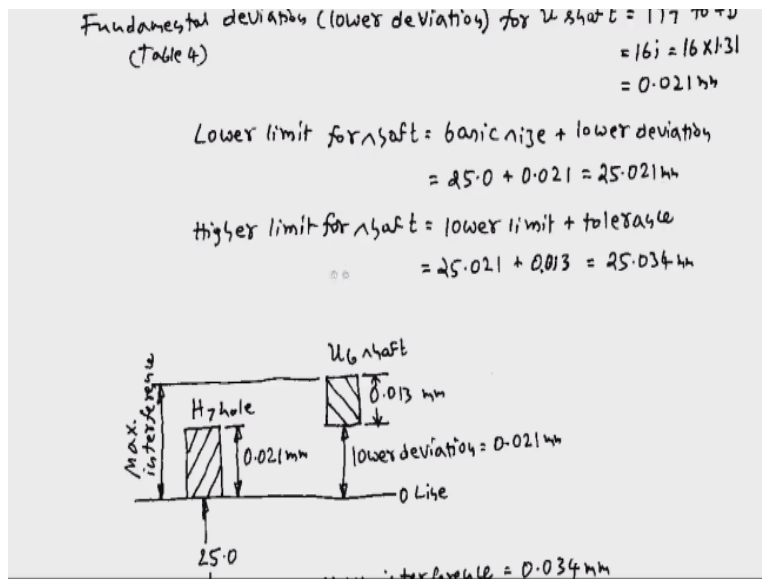 Fundamental deviation (lower deviation) for u shaft =
(Table 4)
= 16i = 16 x 1.31
= 0.021 mm
Lower limit for shaft = basic size + lower deviation
= 25.0 + 0.021 = 25.021 mm
Higher limit for shaft = lower limit + tolerance
= 25.021 + 0.013 = 25.034 mm
U6 shaft
0.013 mm
Max. interference
H7 hole
0.021 mm
lower deviation = 0.021 mm
0 Line
25.0
interference = 0.034 mm